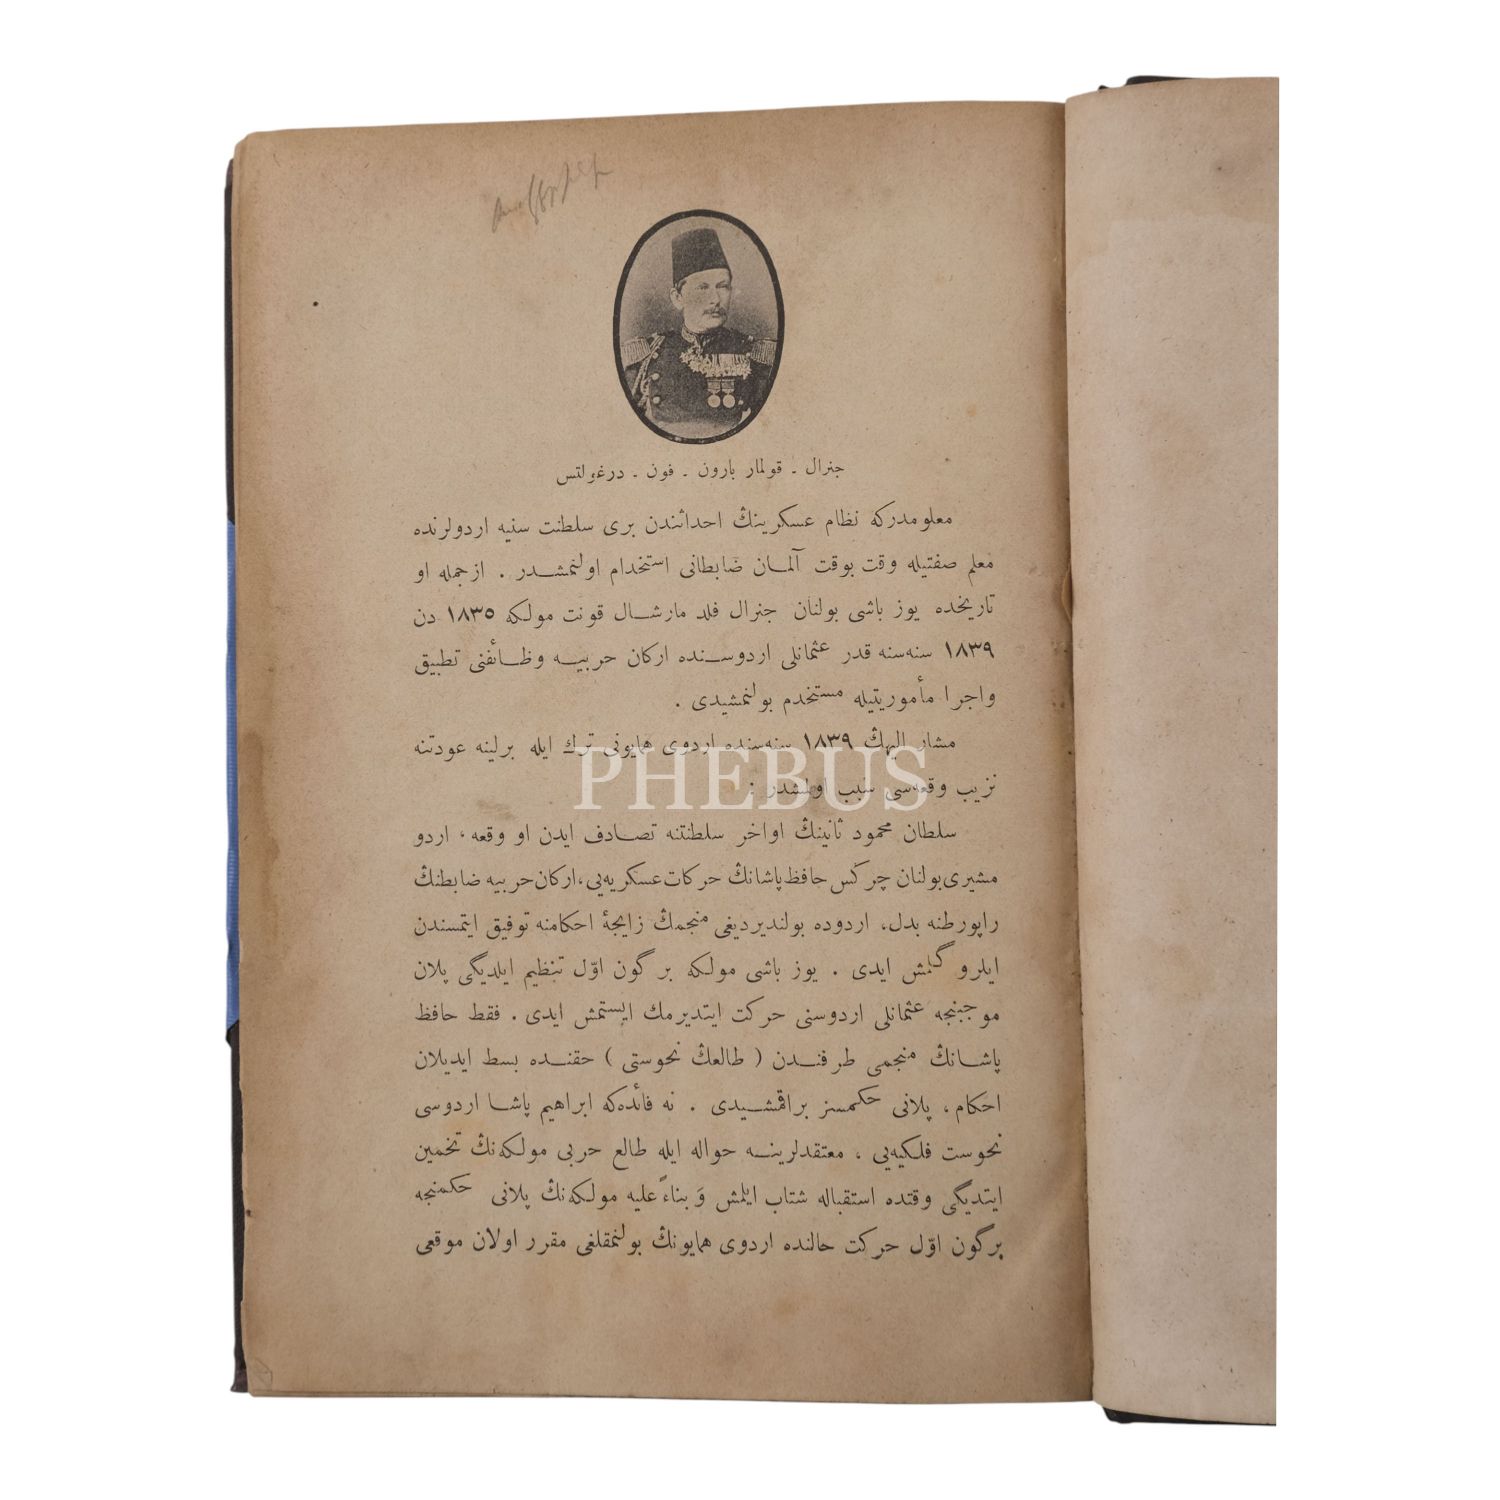 جنرال ـ قولمار بارون ـ فون ـ درغولتس
معلومدركه نظام عسكرینڭ احداثندن بری سلطنت سنیه اردولرنده
معلم صفتیله وقت بوقت آلمـان ضابطانی استخدام اولنمشـدر . ازجمله او
تاریخده یوز باشی بولنان جنرال فلد مارشـال قونت مولكه ١٨٣٥ دن
١٨٣٩ سنه‌سنه قدر عثمانلی اردوسـنده اركان حربیـه وظـائفنی تطبیق
واجرا مأموریتیله مستخدم بولنمشیدی .
مشار الیهڭ ١٨٣٩ سنه‌سنده اردوی همایونی ترك ایله برلینه عودتنه
نزیب وقعه‌سی سبب اولمشدر :
PHEBUS
سلطان محمود ثانینڭ اواخر سلطنتنه تصادف ایدن او وقعه ، اردو
مشیری بولنان چركس حافظ پاشانڭ حركات عسكریه‌یی ، اركان حربیه ضابطنڭ
راپورطنه بدل، اردوده بولندیردیغی منجمڭ زایجهٔ احكامنه توفیق ایتمسندن
ایلرو گلمش ایدی . یوز باشی مولكه بر گون اوّل تنظیم ایلدیگی پلان
موجبنجه عثمانلی اردوسنی حركت ایتدیرمك ایستمش ایدی . فقط حافظ
پاشـانڭ منجمی طرفنـدن ( طالعڭ نحوستی ) حقنـده بسط ایدیلان
احكام ، پلانی حكمسز براقمشـیدی . نه فائده‌كه ابراهیم پاشـا اردوسی
نحوست فلكیه‌یی ، معتقدلرینـه حواله ایله طالع حربی مولكه‌نڭ تخمین
ایتدیگی وقتده استقباله شتاب ایلمش وَ بناءً علیه مولكه‌نڭ پلانی حكمنجه
برگون اوّل حركت حالنده اردوی همایونڭ بولنمقلغی مقرر اولان موقعی